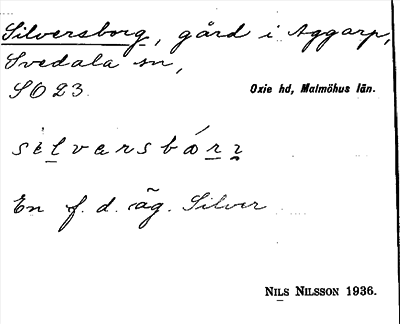 Silversborg, gård i Aggarp,
Svedala sn,
SO23. Oxie hd, Malmöhus län.
silvarsbárɪ
En f. d. äg. Silver
NILS NILSSON 1936.